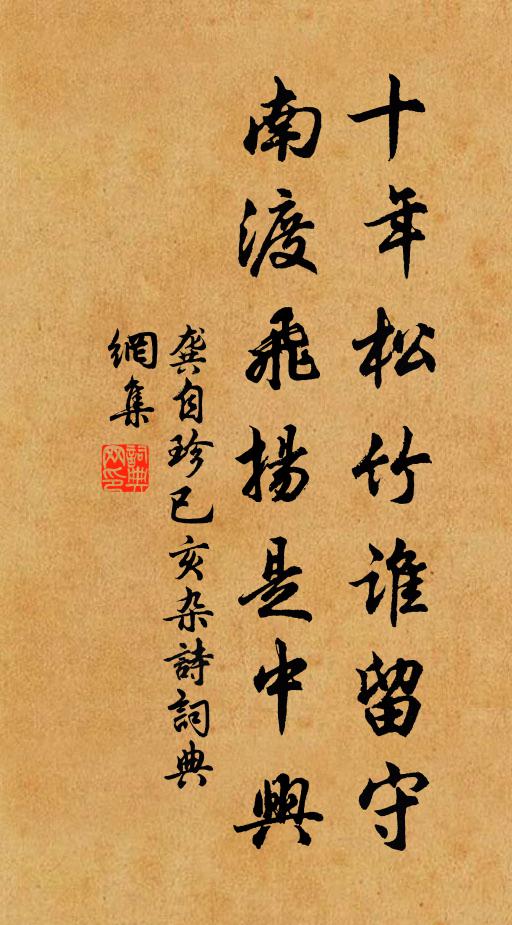 十年松竹誰留守
南渡飛揚是中興
龔自珍己亥杂詩詞典
網集
詞典
网印